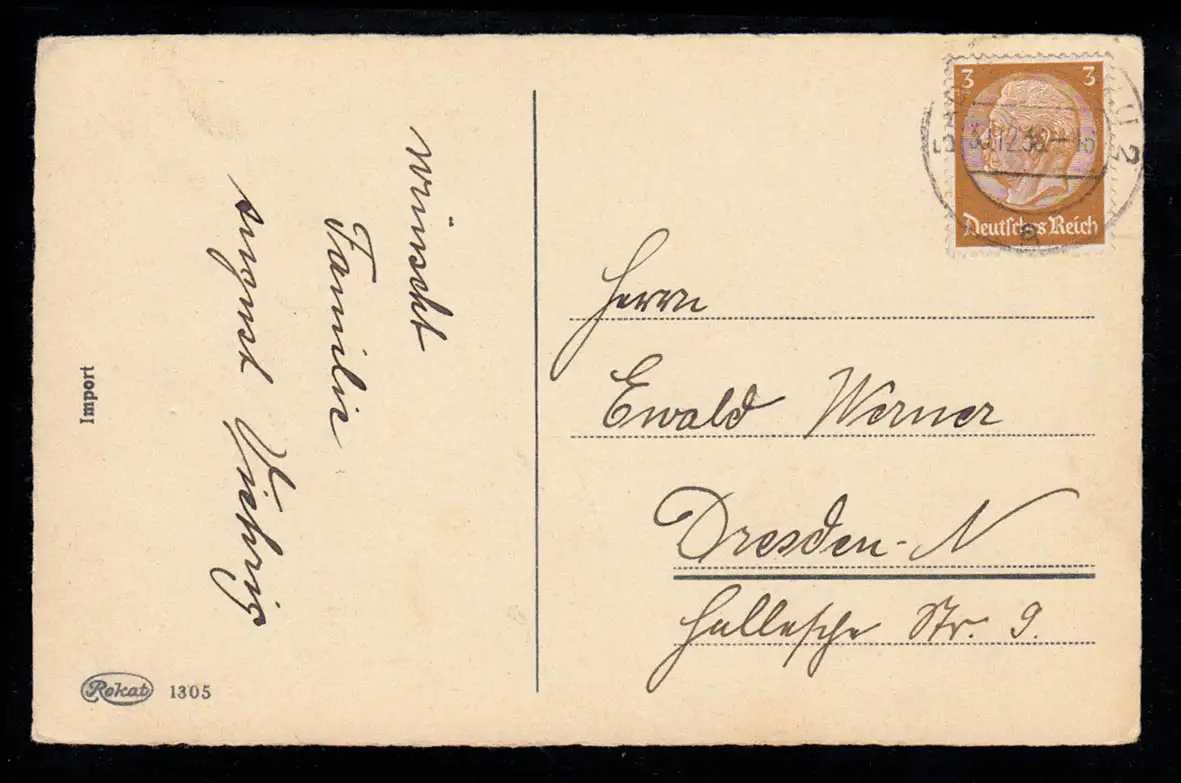 wünscht
Familie
August Viehrig
Import
Rokat 1305
3 3
Deutsches Reich
30.12.36.-16
2
Herrn
Ewald Werner
Dresden-N
Hallesche Str. 9.